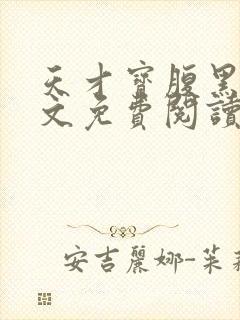 天才寶腹黑
文免費閱讀
安吉麗娜-茱莉